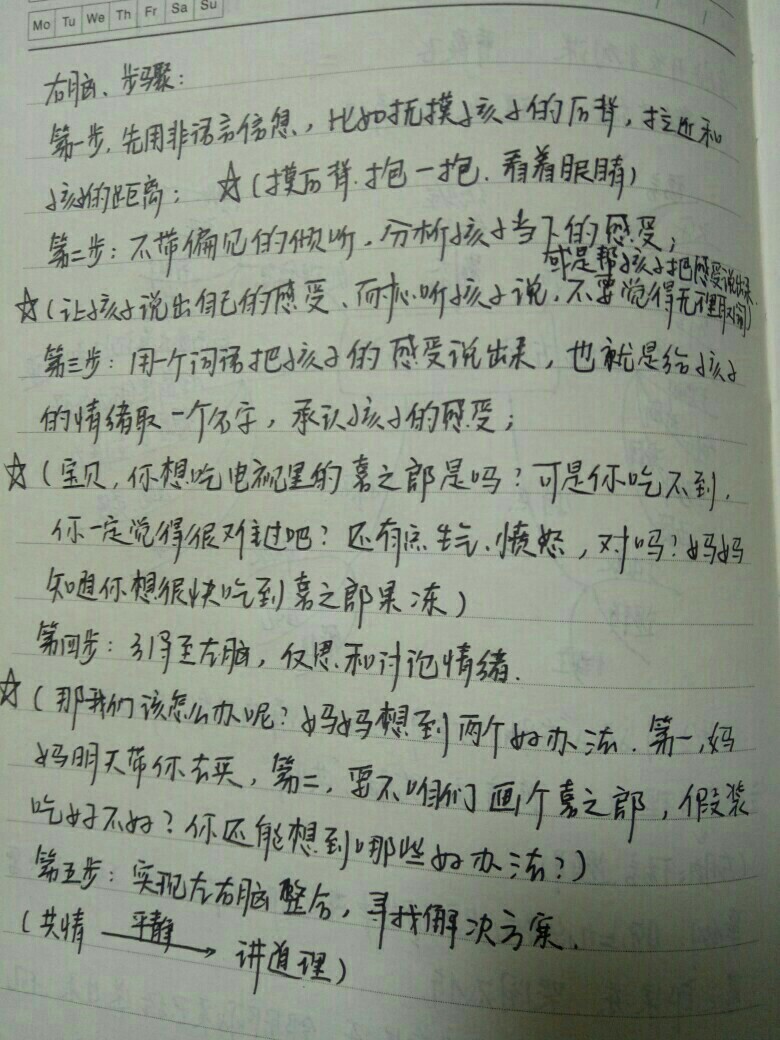 Mo Tu We Th Fr Sa Su
右脑、步骤:
第一步,先用非语言信息,比如抚摸孩子的后背,拉近和
孩子的距离; ☆(摸后背.抱一抱.看着眼睛)
第二步:不带偏见的倾听,分析孩子当下的感受;
或是帮孩子把感受说出来.
☆(让孩子说出自己的感受、耐心听孩子说,不要觉得无理取闹)
第三步:用一个词语把孩子的感受说出来,也就是给孩子
的情绪取一个名字,承认孩子的感受;
☆(宝贝,你想吃电视里的喜之郎是吗?可是你吃不到,
你一定觉得很难过吧?还有点生气、愤怒,对吗?妈妈
知道你想很快吃到喜之郎果冻)
第四步:引导至左脑,反思和讨论情绪.
☆(那我们该怎么办呢?妈妈想到两个好办法.第一,妈
妈明天带你去买,第二,要不咱们画个喜之郎,假装
吃好不好?你还能想到哪些好办法?)
第五步:实现左右脑整合,寻找解决方案.
(共情 平静→ 讲道理)